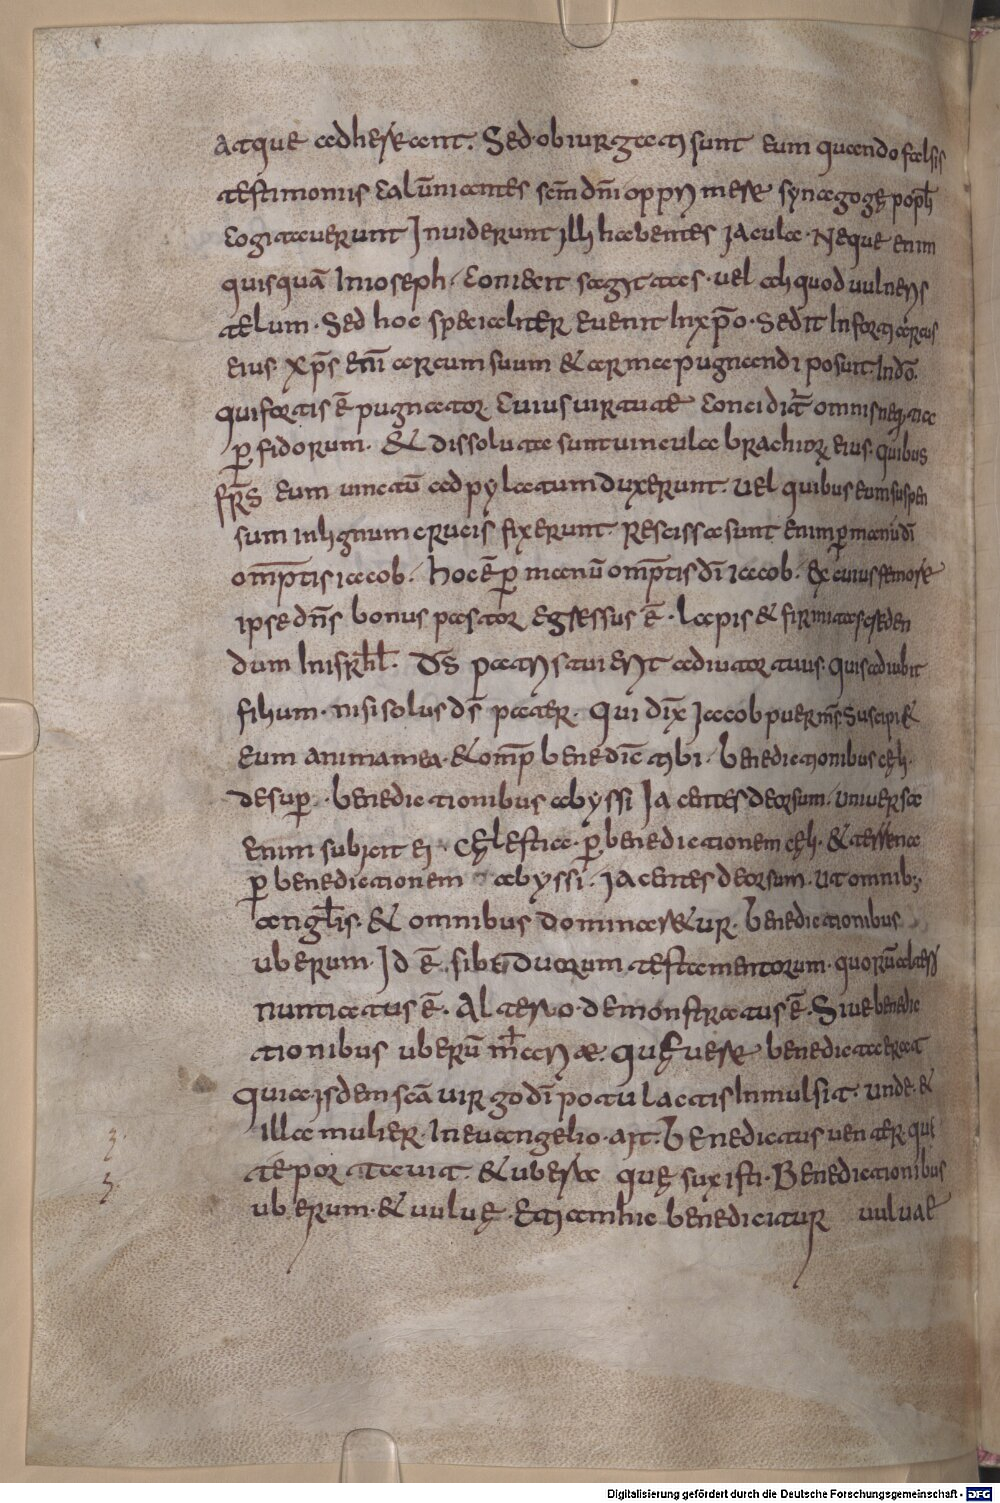 Atque adherent. Sed obiurgati sunt eum quando falsis
testimoniis calūniantes scm̄ dnm̄ oppri mere synagogę pop̄l
cogitaverunt Inviderunt illi habentes jacula. Neque enim
quisquā Inioseph. Coniecit sagittas. vel aliquod vulneris
telum. Sed hoc specialiter evenit Inxpō. Sedit Inforti arcus
eius. Xps̄ enī arcum suum & arma pugnandi posuit Indō.
qui fortis ē pugnator. Cuius virtute concidit omnis nequitia
p̄fidorum. & dissolute sunt vincula brachioꝝ eius. quibus
fr̄s eum vinctū ad pylatum duxerunt. vel quibus eum suspen
sum in lignum crucis fixerunt. Rescissa sunt enim p̄ manū dī
omp̄tis iacob. hoc ē p̄ manū omp̄tis dī iacob. ex cuius femore
ipse dn̄s bonus pastor egressus ē. Lapis & firmitas creden
dum Inisrl̄. Ds̄ patris tui erit adiutor tuus. quis adiubit
filium. nisi solus ds̄ pater. Qui dix̄ Iacob puer ms̄. Suscipi &
eum anima mea. & omp̄ benedic̄ tibi. benedictionibus cęli
desup̄. benedictionibus abyssi Jacentes deorsum. Universa
enim subiecit ei cęlestia. p̄ benedictionem cęli. & terrena
p̄ benedictionem abyssi. Jacentes deorsum. Ut omnib;
angl̄is. & omnibus dominaretur. benedictionibus
uberum. Id ē. sibe duorum testamentorum. quorū alteri
nuntiatus ē. Altero demonstratus ē. Sive benedic
tionibus uberū mariæ. quę vere benedicta erat
quia isdem scā virgo dnī potu lactis Inmulsit. Unde &
illa mulier. In evangelio. ait. Benedictus venter que
te portavit. & ubera quę suxisti. Benedictionibus
uberum. & vulvę. Etiam hic benedicitur vulvae
Digitalisierung gefördert durch die Deutsche Forschungsgemeinschaft - DFG